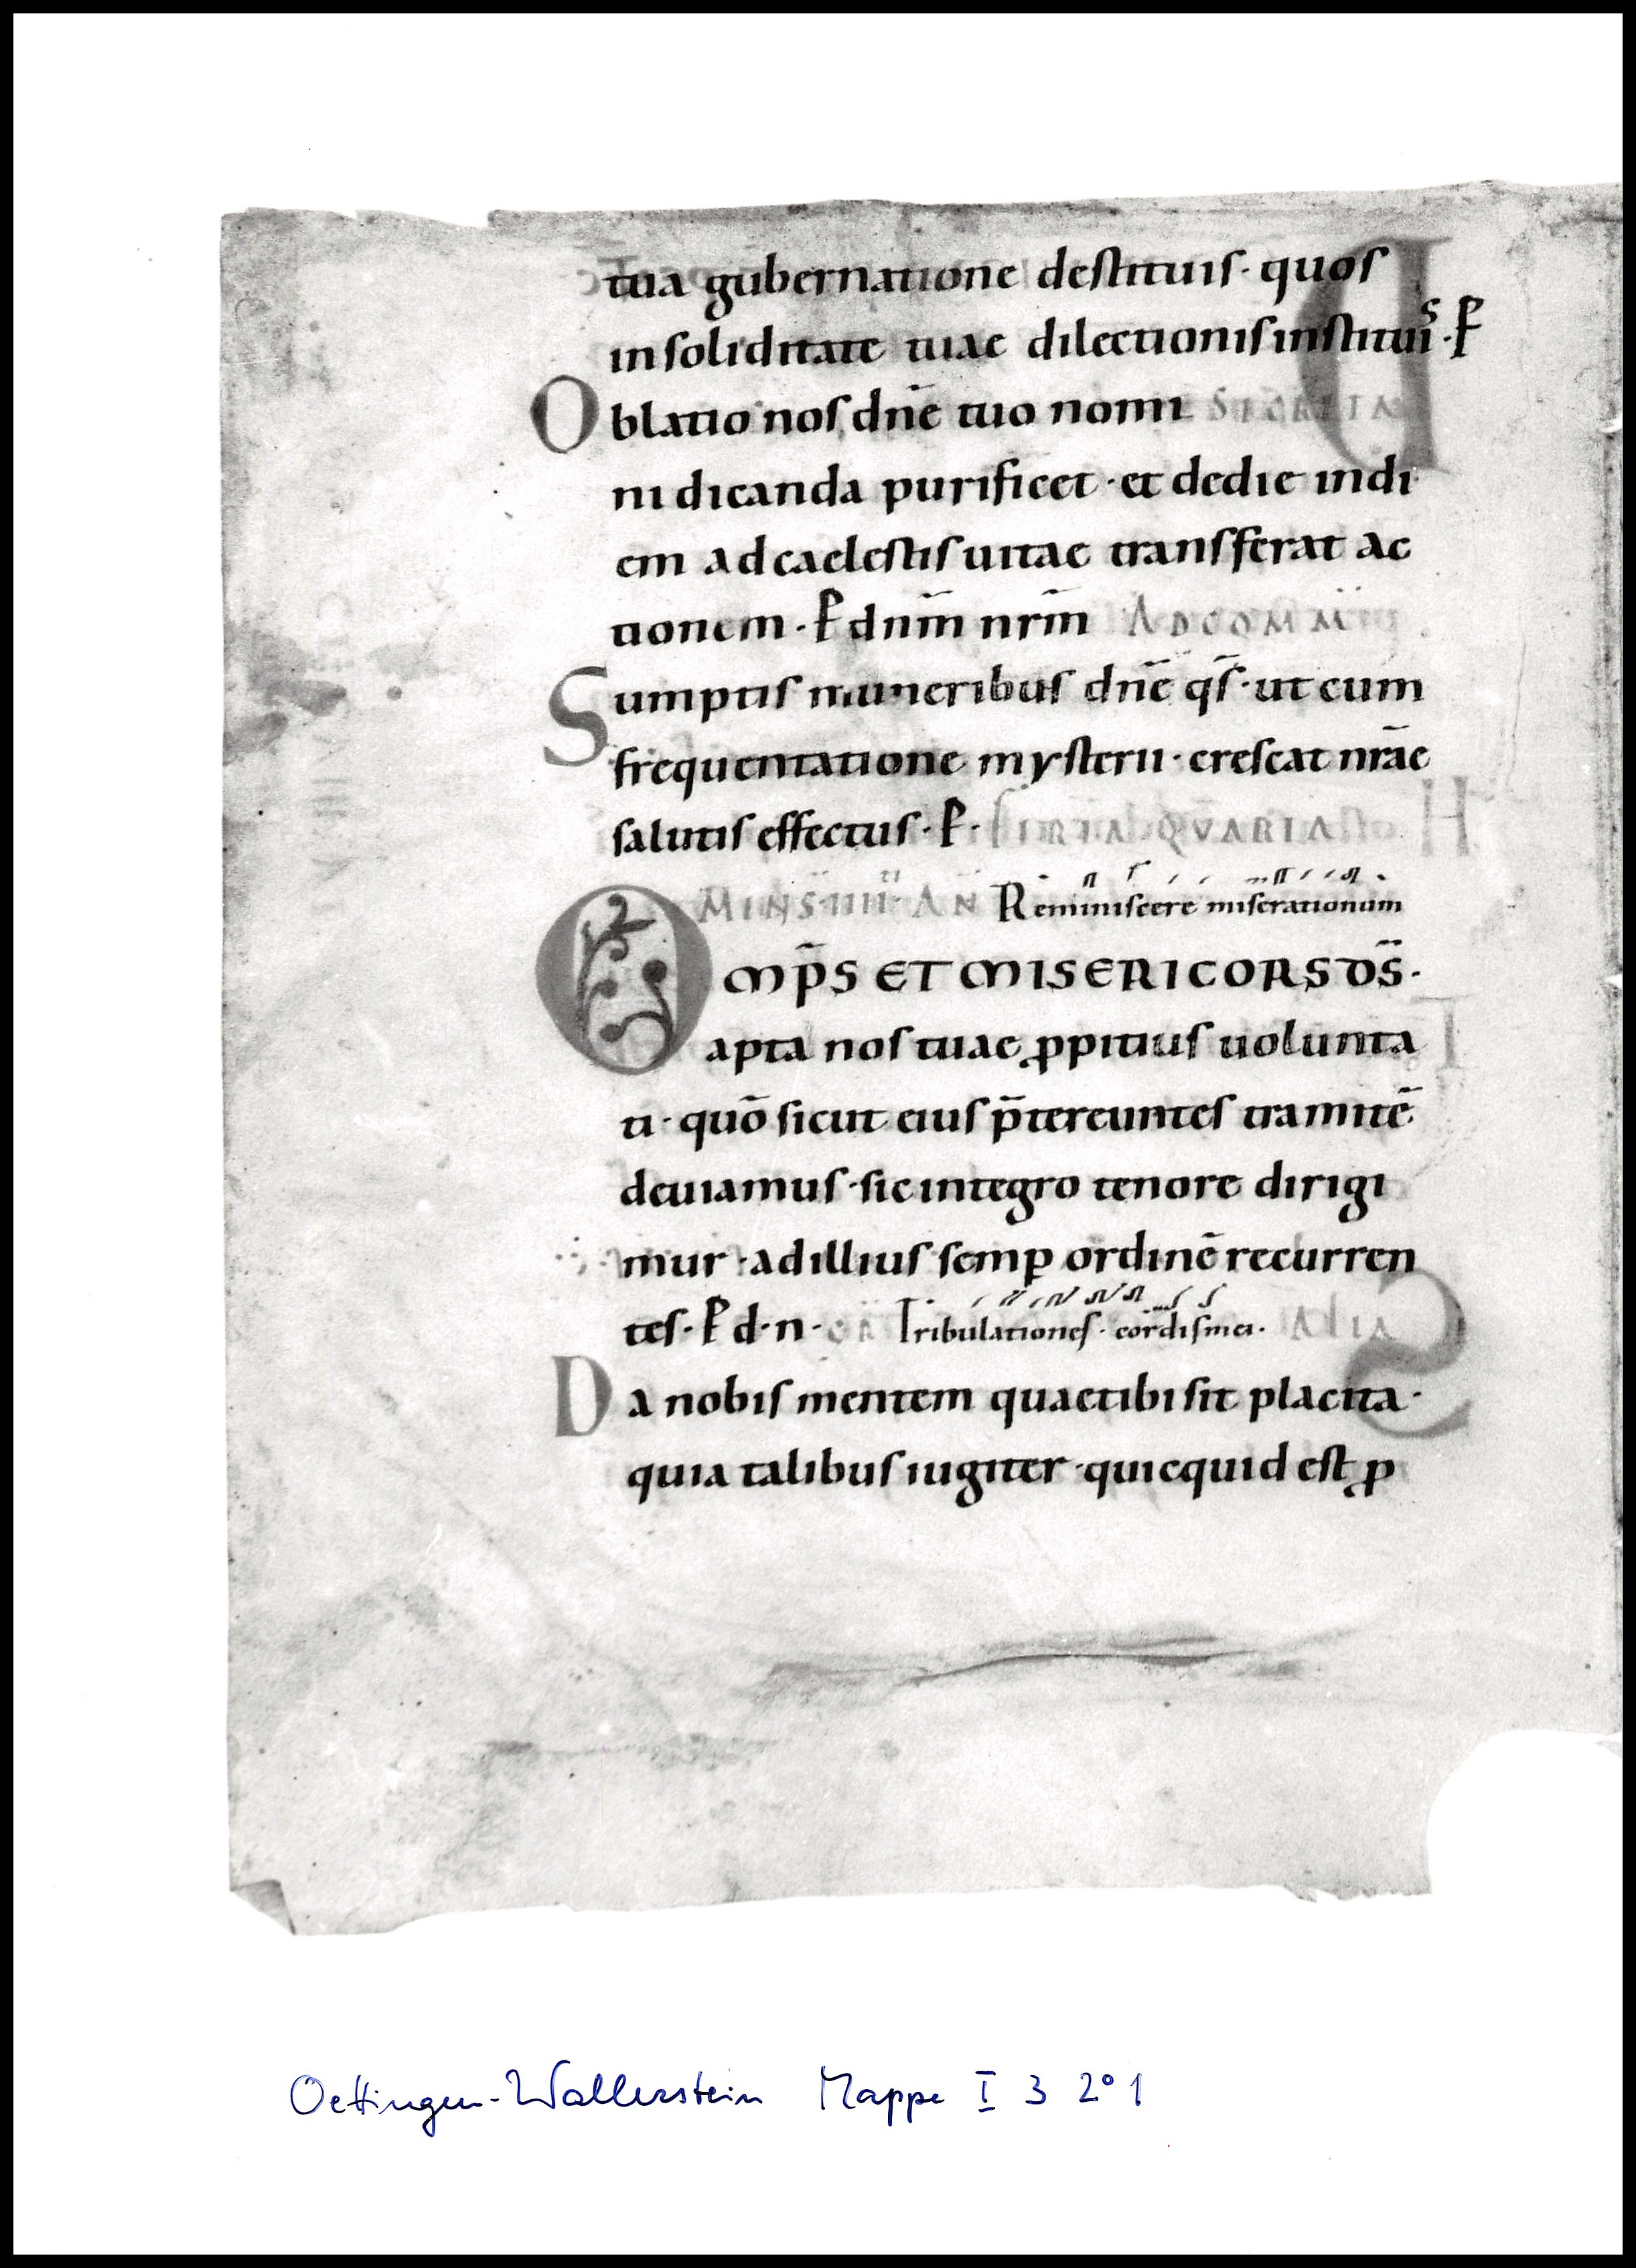 tua gubernatione destituis · quos
in soliditate tuae dilectionis institui^s · P̄
Oblatio nos dn̄e tuo nomi SECRETA
ni dicanda purificet · et de die in di
em ad caelestis uitae transferat ac
tionem · P̄ dnm̄ nrm̄ AD COM̄
Sumptis muneribus dn̄e qs̄ · ut cum
frequentatione mysterii · crescat nr̄ae
salutis effectus · P̄ · FERIA QVARTA
MENS IIII AN Reminiscere miserationum
OMP̄S ET MISERICORS DS̄ ·
apta nos tuae ꝓpitius uolunta
ti · quō sicut eius p̄tereuntes tramitē
deuiamus · sic integro tenore dirigi
mur · ad illius semꝑ ordinē recurren
tes · P̄ d · n · GR̄ Tribulationes · cordis mei · ALIA
Da nobis mentem quae tibi sit placita ·
quia talibus iugiter · quicquid est ꝓ
Oettingen-Wallerstein Mappe I 3 2° 1